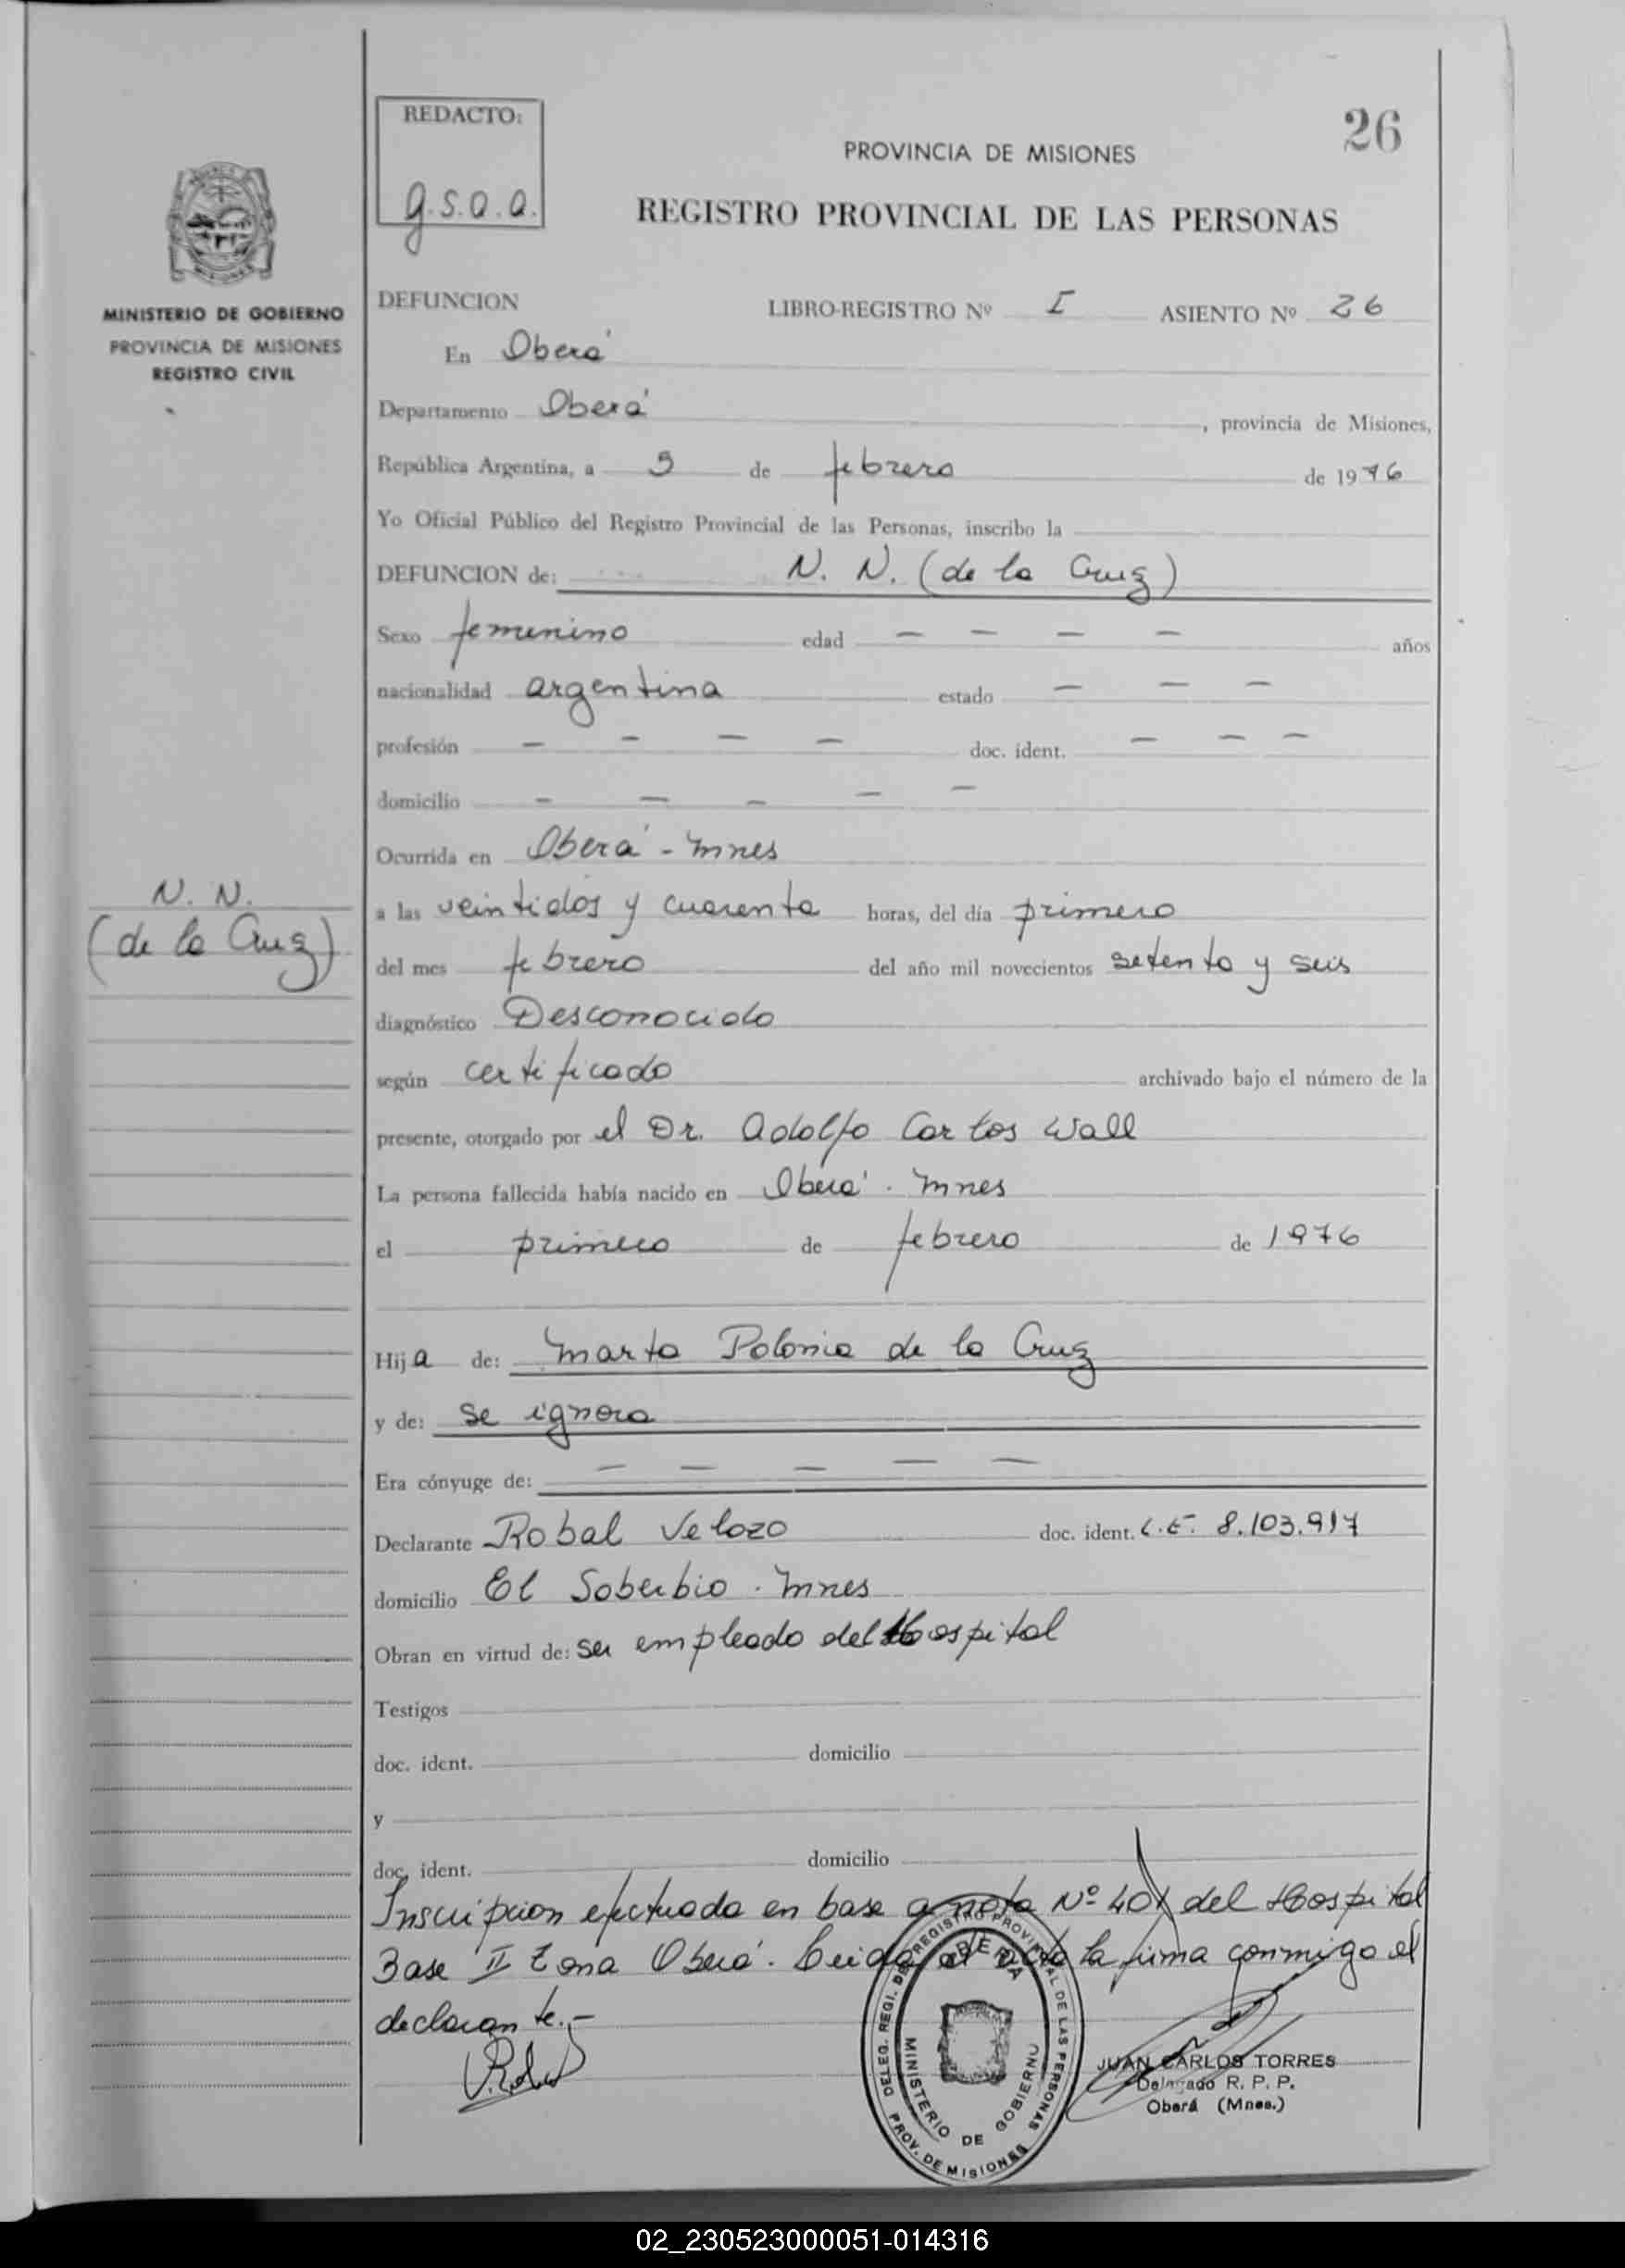 REDACTO:
g.s.a.a.
26
PROVINCIA DE MISIONES
REGISTRO PROVINCIAL DE LAS PERSONAS
MINISTERIO DE GOBIERNO
PROVINCIA DE MISIONES
REGISTRO CIVIL
DEFUNCION LIBRO-REGISTRO Nº I ASIENTO Nº 26
En Oberá
Departamento Oberá, provincia de Misiones,
República Argentina, a 5 de febrero de 1976
Yo Oficial Público del Registro Provincial de las Personas, inscribo la
DEFUNCION de: N. N. (de la Cruz)
Sexo femenino edad — — — — años
nacionalidad argentina estado — — —
profesión — — — — doc. ident. — — —
domicilio — — — — —
Ocurrida en Oberá - Mnes
N. N.
(de la Cruz)
a las veintidos y cuarenta horas, del día primero
del mes febrero del año mil novecientos setenta y seis
diagnóstico Desconocido
según certificado archivado bajo el número de la
presente, otorgado por el Dr. Adolfo Carlos Wall
La persona fallecida había nacido en Oberá . Mnes
el primero de febrero de 1976
Hija de: Marta Polonia de la Cruz
y de: se ignora
Era cónyuge de: — — — — —
Declarante Robal Velozo doc. ident. L.E. 8.103.917
domicilio El Soberbio . Mnes
Obran en virtud de: ser empleado del Hospital
Testigos
doc. ident. domicilio
y
doc. ident. domicilio
Inscripcion efectuada en base a nota Nº 401 del Hospital
Base II Zona Oberá. Leida el acta la firma conmigo el
declarante.-
DELEG. REGI. DEL REGISTRO PROVINCIAL DE LAS PERSONAS
OBERA
MINISTERIO DE GOBIERNO
PROV. DE MISIONES
JUAN CARLOS TORRES
Delegado R. P. P.
Oberá (Mnes.)
02_230523000051-014316